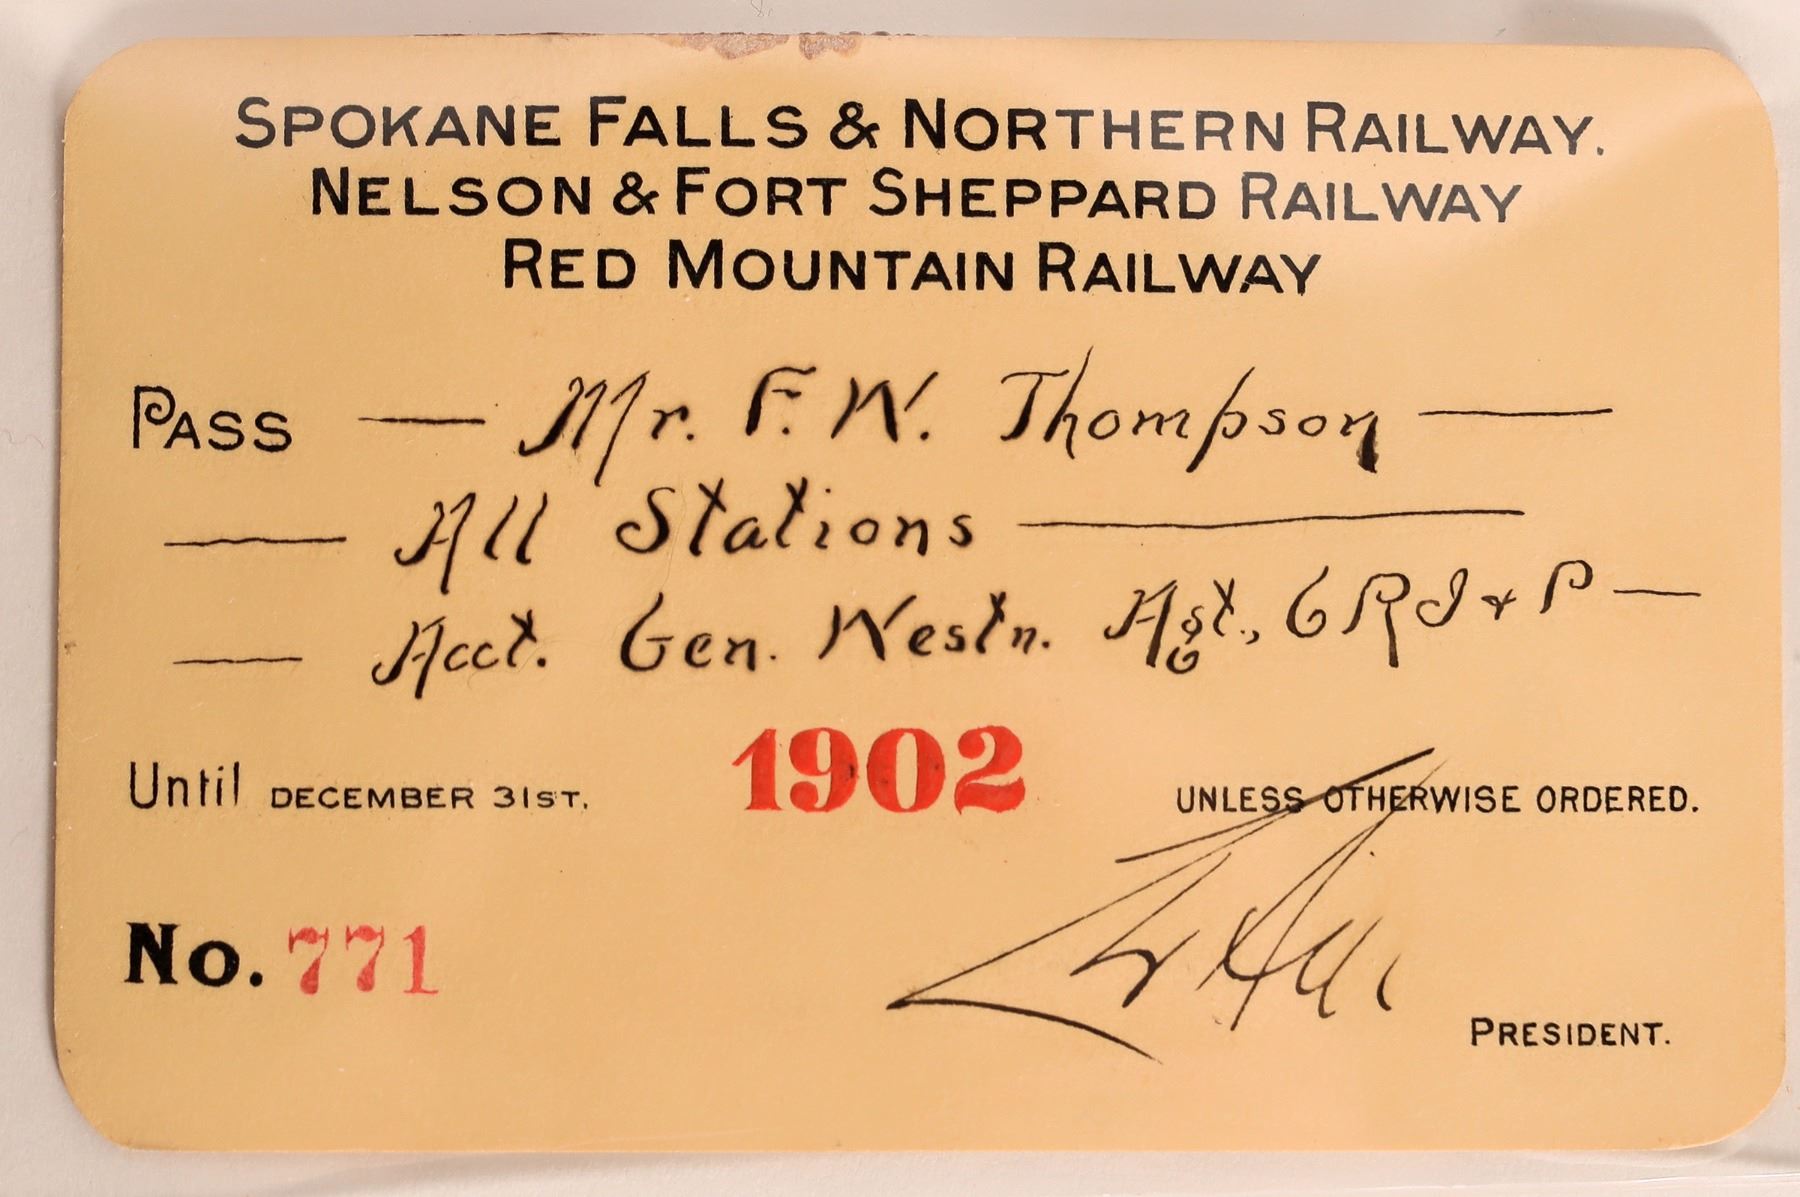 SPOKANE FALLS & NORTHERN RAILWAY.
NELSON & FORT SHEPPARD RAILWAY
RED MOUNTAIN RAILWAY
PASS — Mr. F. W. Thompson —
— All Stations —
— Acct. Gen. Westn. Agt., C R I & P —
Until DECEMBER 31ST. 1902 UNLESS OTHERWISE ORDERED.
No. 771
PRESIDENT.